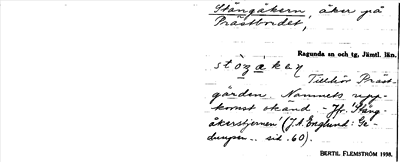 Stångåkern, åker på
Prästbordet,
Ragunda sn och tg, Jämtl. län.
Tillhör Präst-
gården. Namnets upp-
komst okänd. - Jfr. 'Stång
åkerstjernen' (J.A. Englund: Ge-
dungsen.. sid. 60).
BERTIL FLEMSTRÖM 1930.